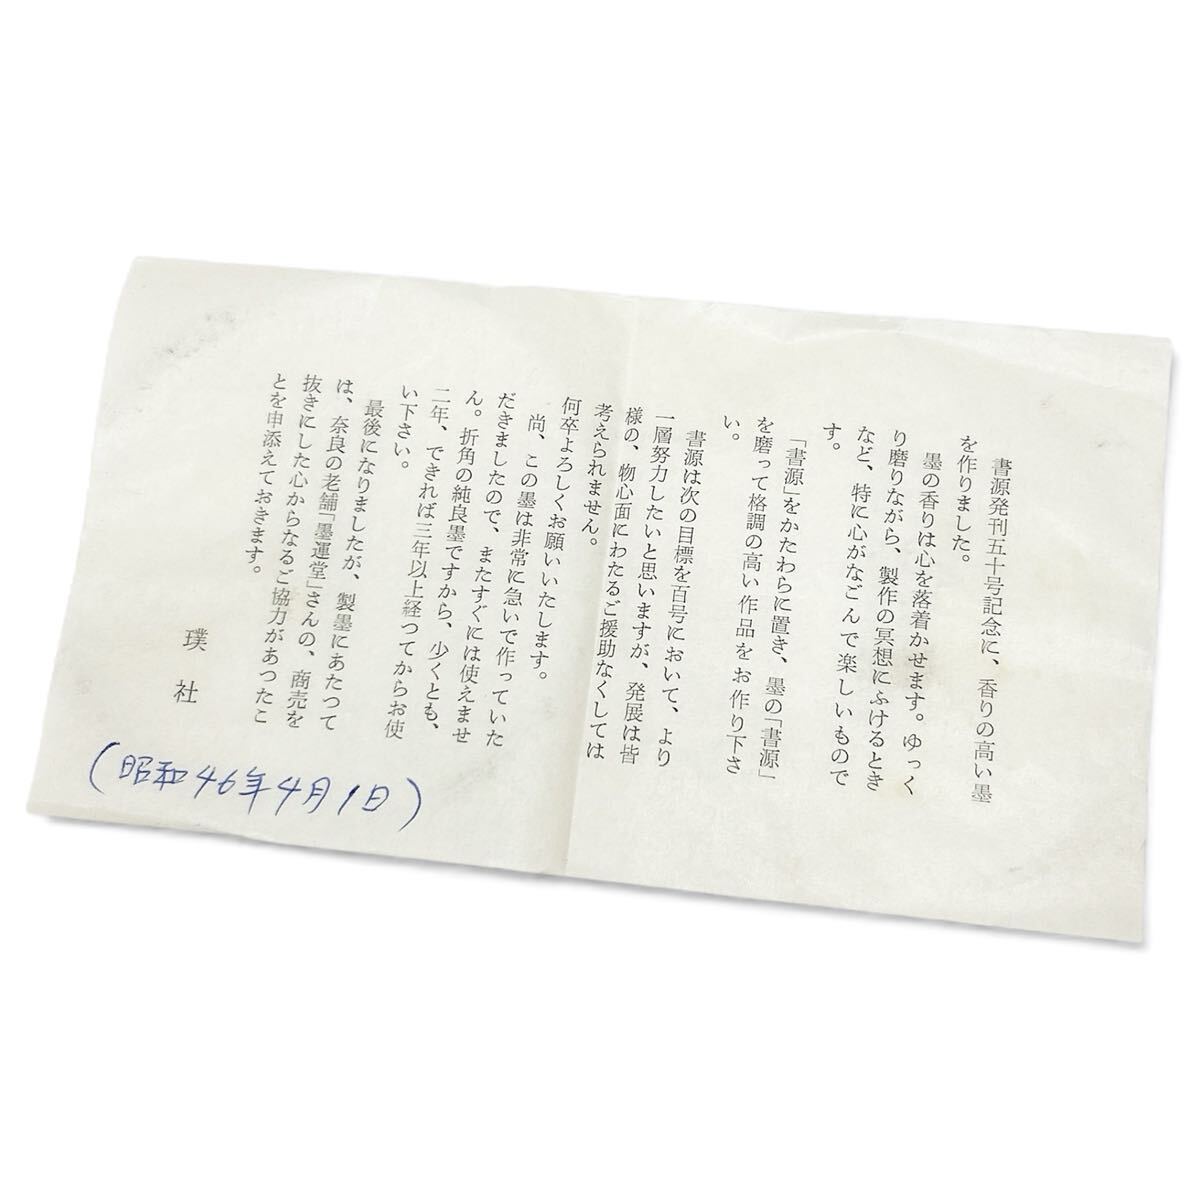 書源発刊五十号記念に、香りの高い墨
を作りました。
墨の香りは心を落着かせます。ゆっく
り磨りながら、製作の冥想にふけるとき
など、特に心がなごんで楽しいもので
す。
「書源」をかたわらに置き、墨の「書源」
を磨って格調の高い作品をお作り下さ
い。
書源は次の目標を百号において、より
一層努力したいと思いますが、発展は皆
様の、物心面にわたるご援助なくしては
考えられません。
何卒よろしくお願いいたします。
尚、この墨は非常に急いで作っていた
だきましたので、まだすぐには使えませ
ん。折角の純良墨ですから、少くとも、
二年、できれば三年以上経つてからお使
い下さい。
最後になりましたが、製墨にあたつて
は、奈良の老舗「墨運堂」さんの、商売を
抜きにした心からなるご協力があったこ
とを申添えておきます。
璞社
(昭和46年4月1日)